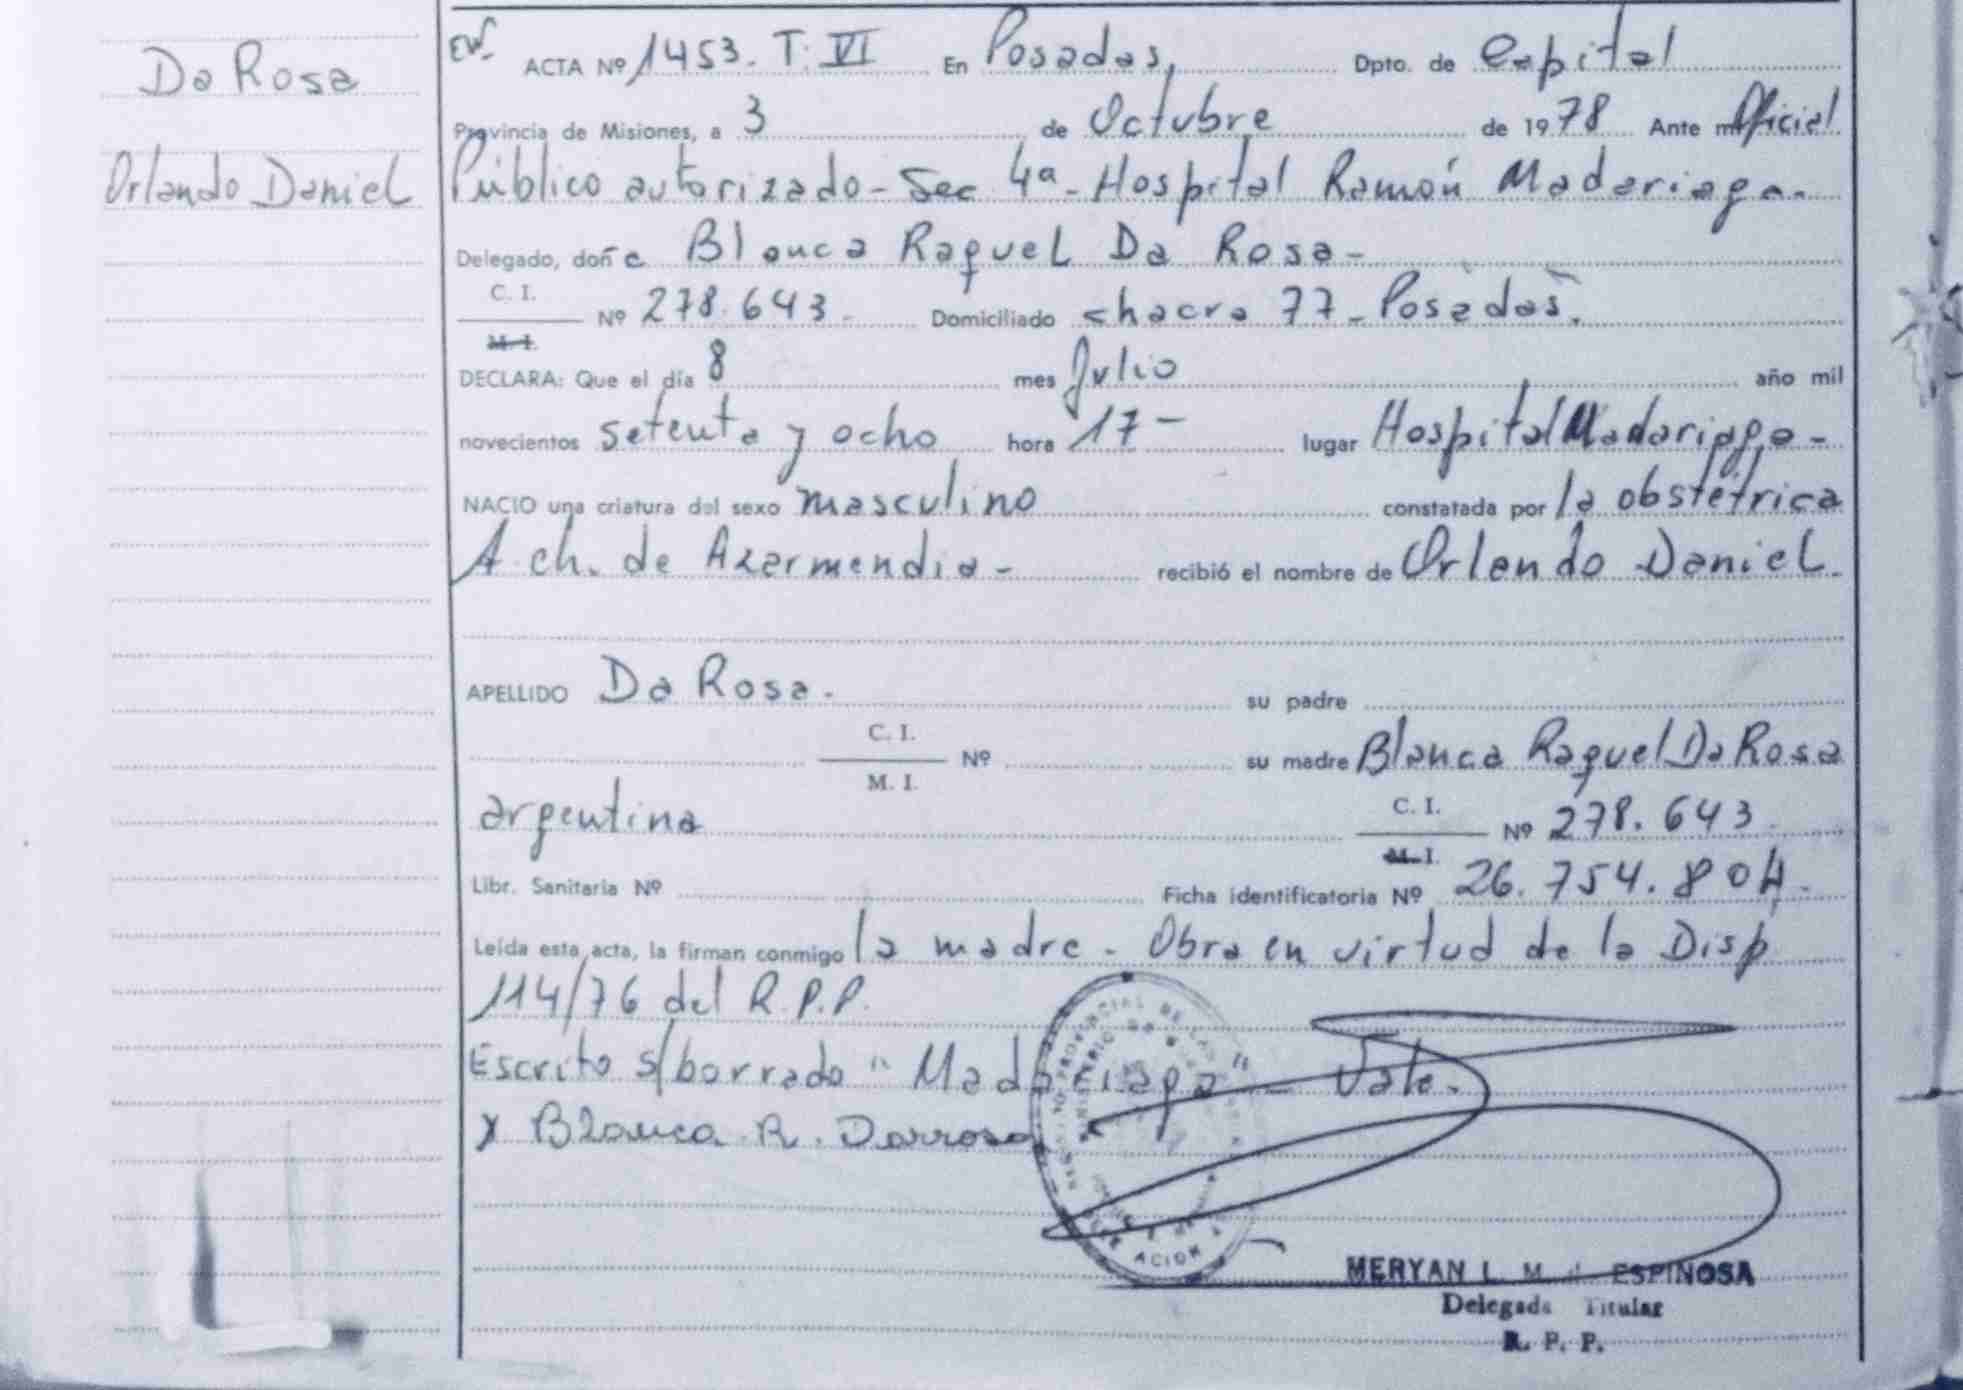 Da Rosa
Orlando Daniel
ACTA Nº 1453. T. VI En Posadas, Dpto. de Capital
Provincia de Misiones, a 3 de Octubre de 1978 Ante mí Oficial
Público autorizado - Sec 4ª - Hospital Ramón Madariaga -
Delegado, doña Blanca Raquel Da Rosa -
C. I.
Nº 278.643 - Domiciliado chacra 77 - Posadas.
M. I.
DECLARA: Que el día 8 mes Julio año mil
novecientos setenta y ocho hora 17 - lugar Hospital Madariaga -
NACIO una criatura del sexo masculino constatada por la obstétrica
A. ch. de Azarmendia - recibió el nombre de Orlando Daniel.
APELLIDO Da Rosa. su padre
C. I.
Nº su madre Blanca Raquel Da Rosa
M. I.
argentina C. I. Nº 278.643
M. I.
Libr. Sanitaria Nº Ficha identificatoria Nº 26.754.804.
Leída esta acta, la firman conmigo la madre - Obra en virtud de la Disp
114/76 del R.P.P.
Escrito s/borrado "Madariaga" - Vale.
x Blanca R. Darrosa
MERYAN L. M. ESPINOSA
Delegada Titular
R. P. P.